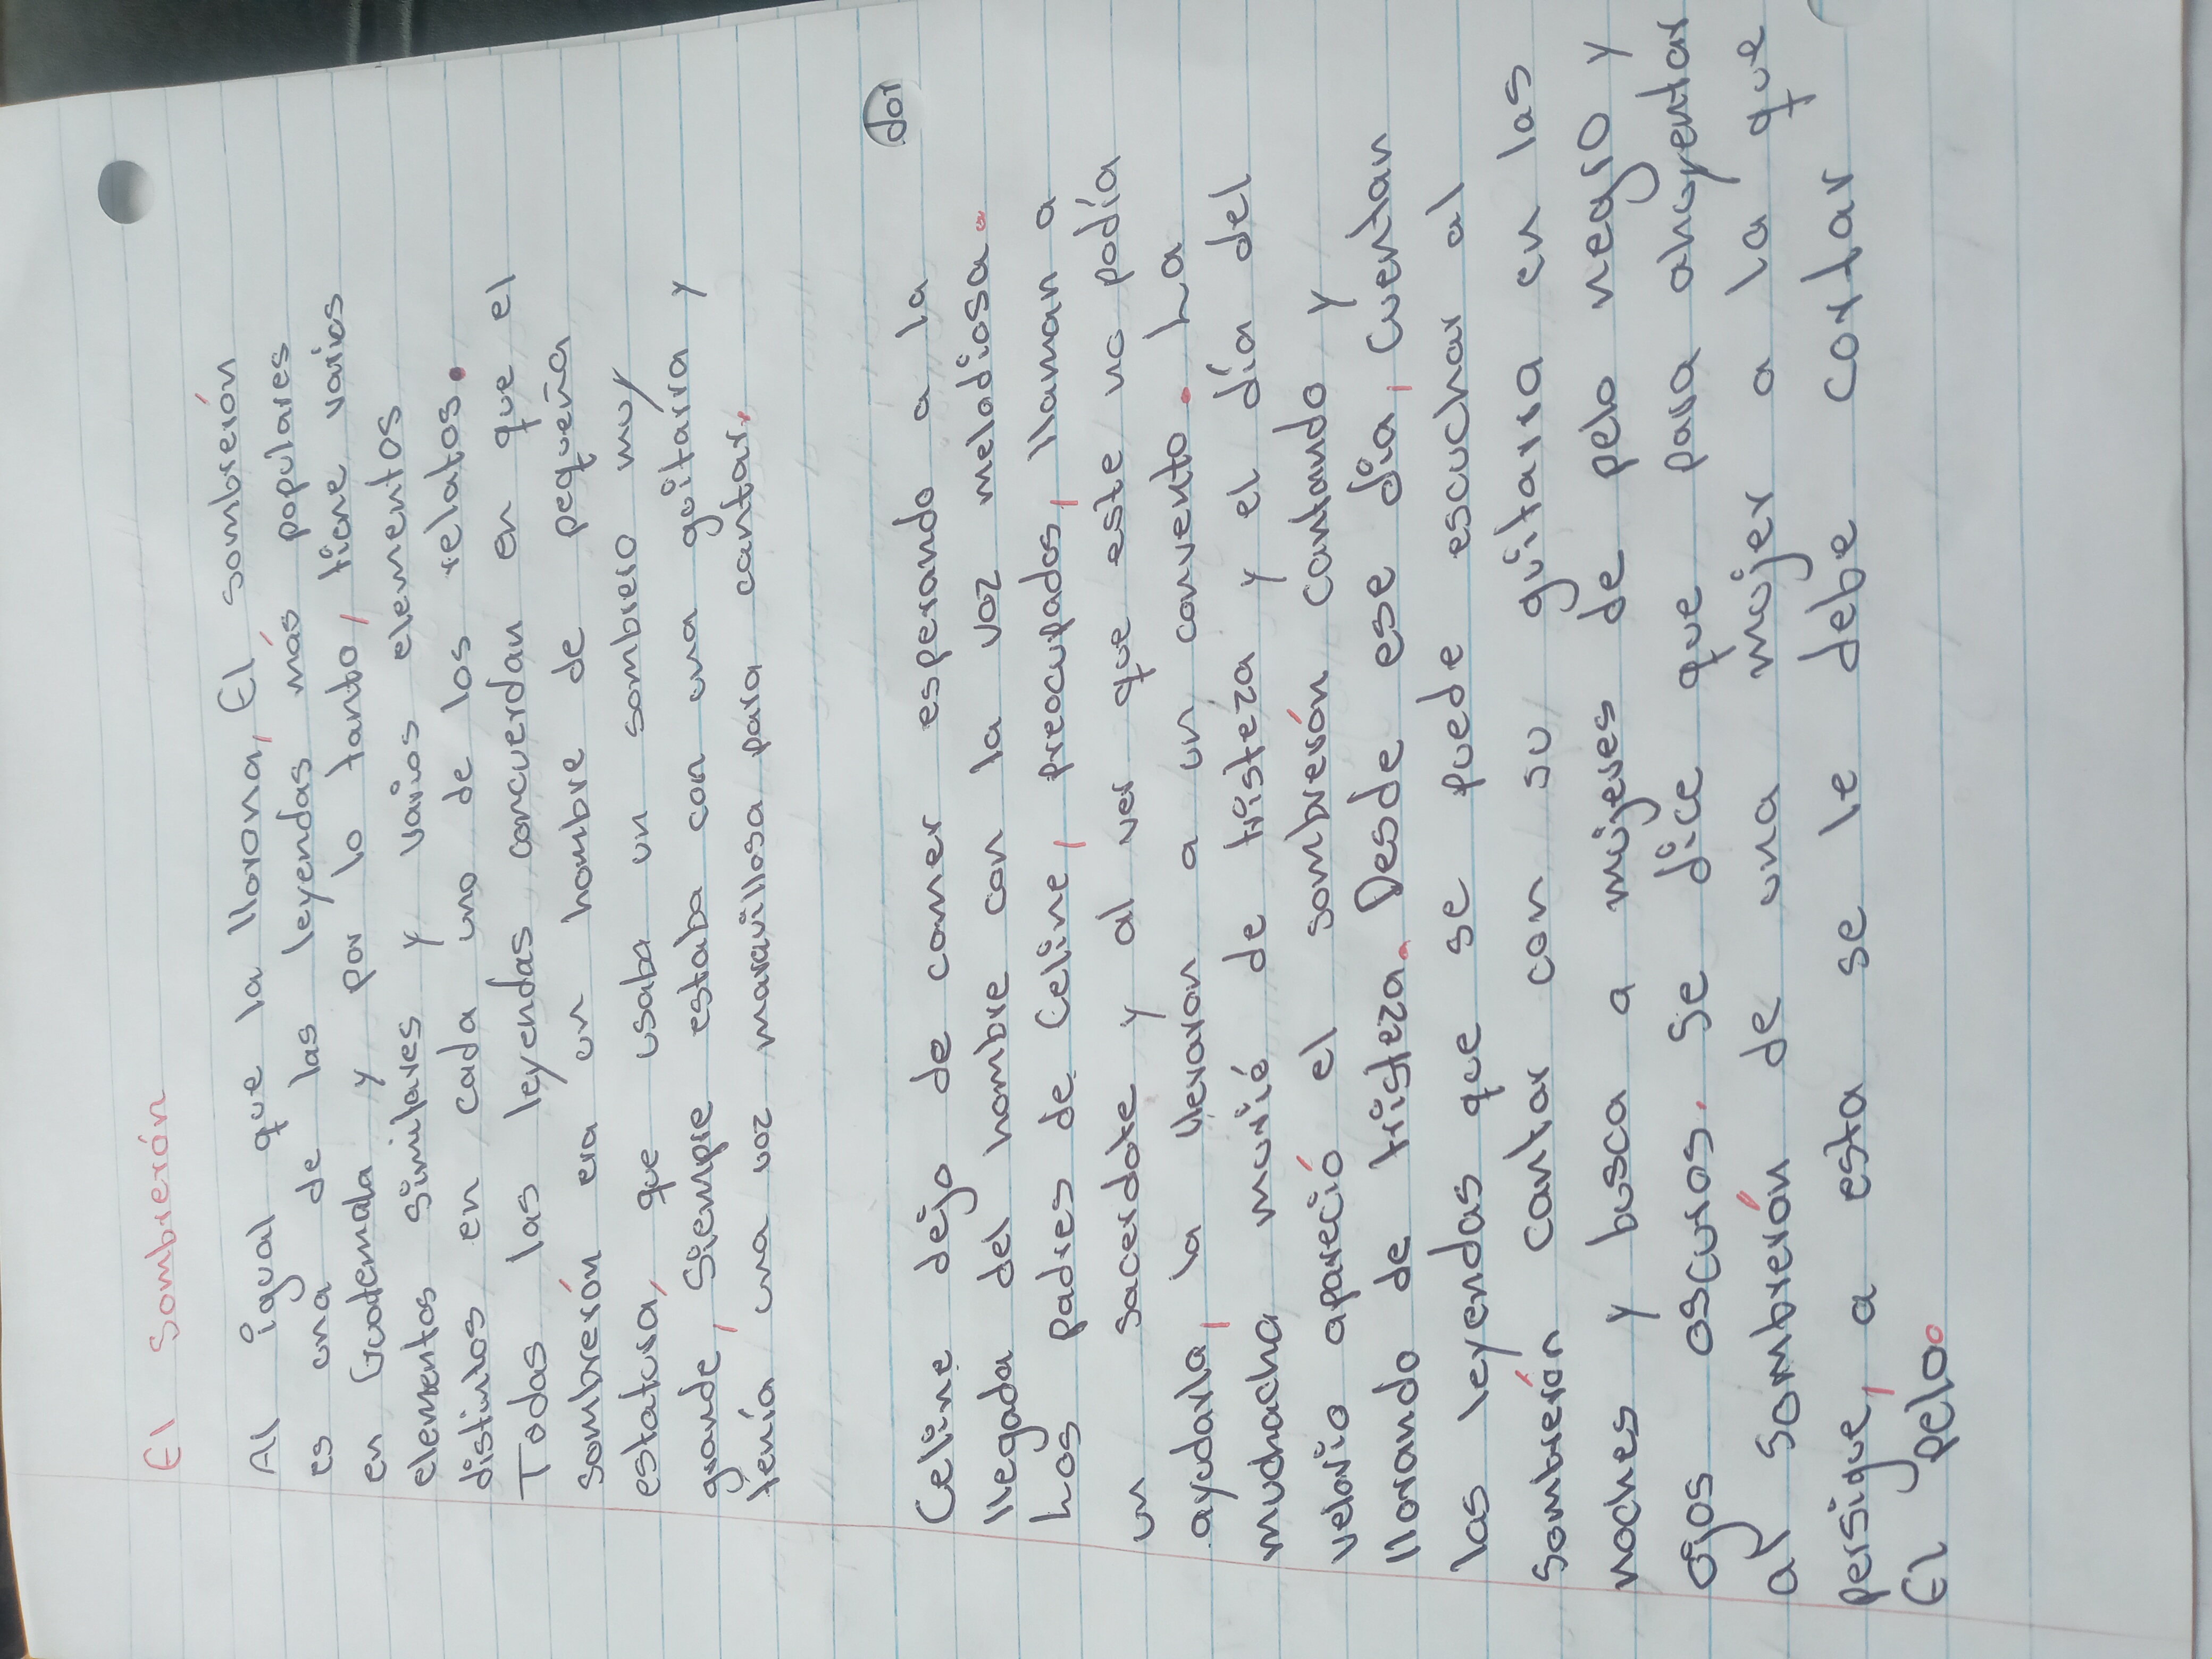 El Sombrerón
Al igual que la llorona, El sombrerón
es una de las leyendas más populares
en Guatemala y por lo tanto, tiene varios
elementos similares y varios elementos
distintos en cada uno de los relatos.
Todas las leyendas concuerdan en que el
sombrerón era un hombre de pequeña
estatura, que usaba un sombrero muy
grande, siempre estaba con una guitarra y
tenía una voz maravillosa para cantar.
Celine dejo de comer esperando a la
llegada del hombre con la voz melodiosa.
Los padres de Celine, preocupados, llaman a
un sacerdote y al ver que este no podía
ayudarla, la llevaron a un convento. La
muchacha murió de tristeza y el día del
velorio apareció el sombrerón cantando y
llorando de tristeza. Desde ese día, cuentan
las leyendas que se puede escuchar al
sombrerón cantar con su guitarra en las
noches y busca a mujeres de pelo negro y
ojos oscuros. Se dice que para ahuyentar
al sombrerón de una mujer a la que
persigue, a esta se le debe cortar
El pelo.